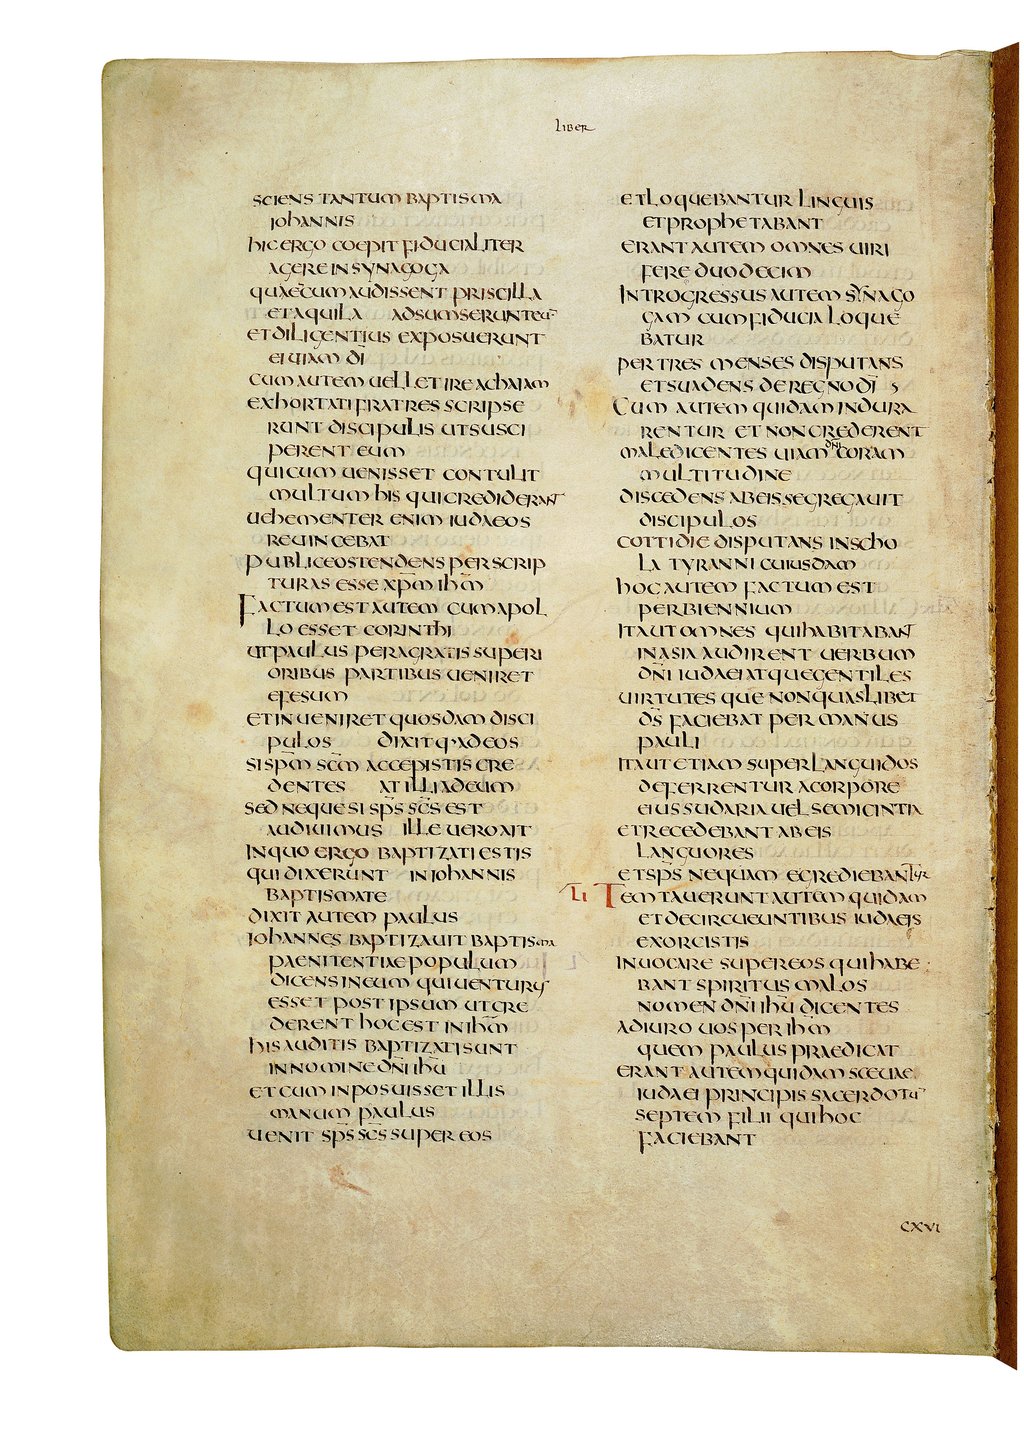 Liber
sciens tantum baptisma
iohannis
hic ergo coepit fiducialiter
agere in synagoga
quae cum audissent priscilla
et aquila adsumserunt eū
et diligentius exposuerunt
ei uiam dī
cum autem uellet ire achaiam
exhortati fratres scripse
runt discipulis ut susci
perent eum
qui cum uenisset contulit
multum his qui crediderant
uehementer enim iudaeos
reuincebat
publice ostendens per scrip
turas esse xp̄m ih̄m
Factum est autem cum apol
lo esset corinthi
ut paulus peragratis superi
oribus partibus ueniret
efesum
et inueniret quosdam disci
pulos dixitq· ad eos
si sp̄m sc̄m accepistis cre
dentes at illi ad eum
sed neque si sp̄s sc̄s est
audiuimus ille uero ait
in quo ergo baptizati estis
qui dixerunt in iohannis
baptismate
dixit autem paulus
iohannes baptizauit baptisma
paenitentiae populum
dicens in eum qui uenturus
esset post ipsum ut cre
derent hoc est in ih̄m
his auditis baptizati sunt
in nomine dn̄i ih̄u
et cum inposuisset illis
manum paulus
uenit sp̄s sc̄s super eos
et loquebantur linguis
et prophetabant
erant autem omnes uiri
fere duodecim
Introgressus autem synago
gam cum fiducia loque
batur
per tres menses disputans
et suadens de regno dī
Cum autem quidam indura
rentur et non crederent
maledicentes uiam dn̄i coram
multitudine
discedens ab eis segregauit
discipulos
cottidie disputans in scho
la tyranni cuiusdam
hoc autem factum est
per biennium
ita ut omnes qui habitabant
in asia audirent uerbum
dn̄i iudaei atque gentiles
uirtutes que non quaslibet
d̄s faciebat per manus
pauli
ita ut etiam super languidos
deferrentur a corpore
eius sudaria uel semicintia
et recedebant ab eis
languores
et sp̄s nequam egrediebantur
LI Temtauerunt autem quidam
et de circueuntibus iudaeis
exorcistis
inuocare super eos qui habe
bant spiritus malos
nomen dn̄i ih̄u dicentes
adiuro uos per ih̄m
quem paulus praedicat
erant autem quidam sceuae
iudaei principis sacerdotū
septem filii qui hoc
faciebant
CXVI